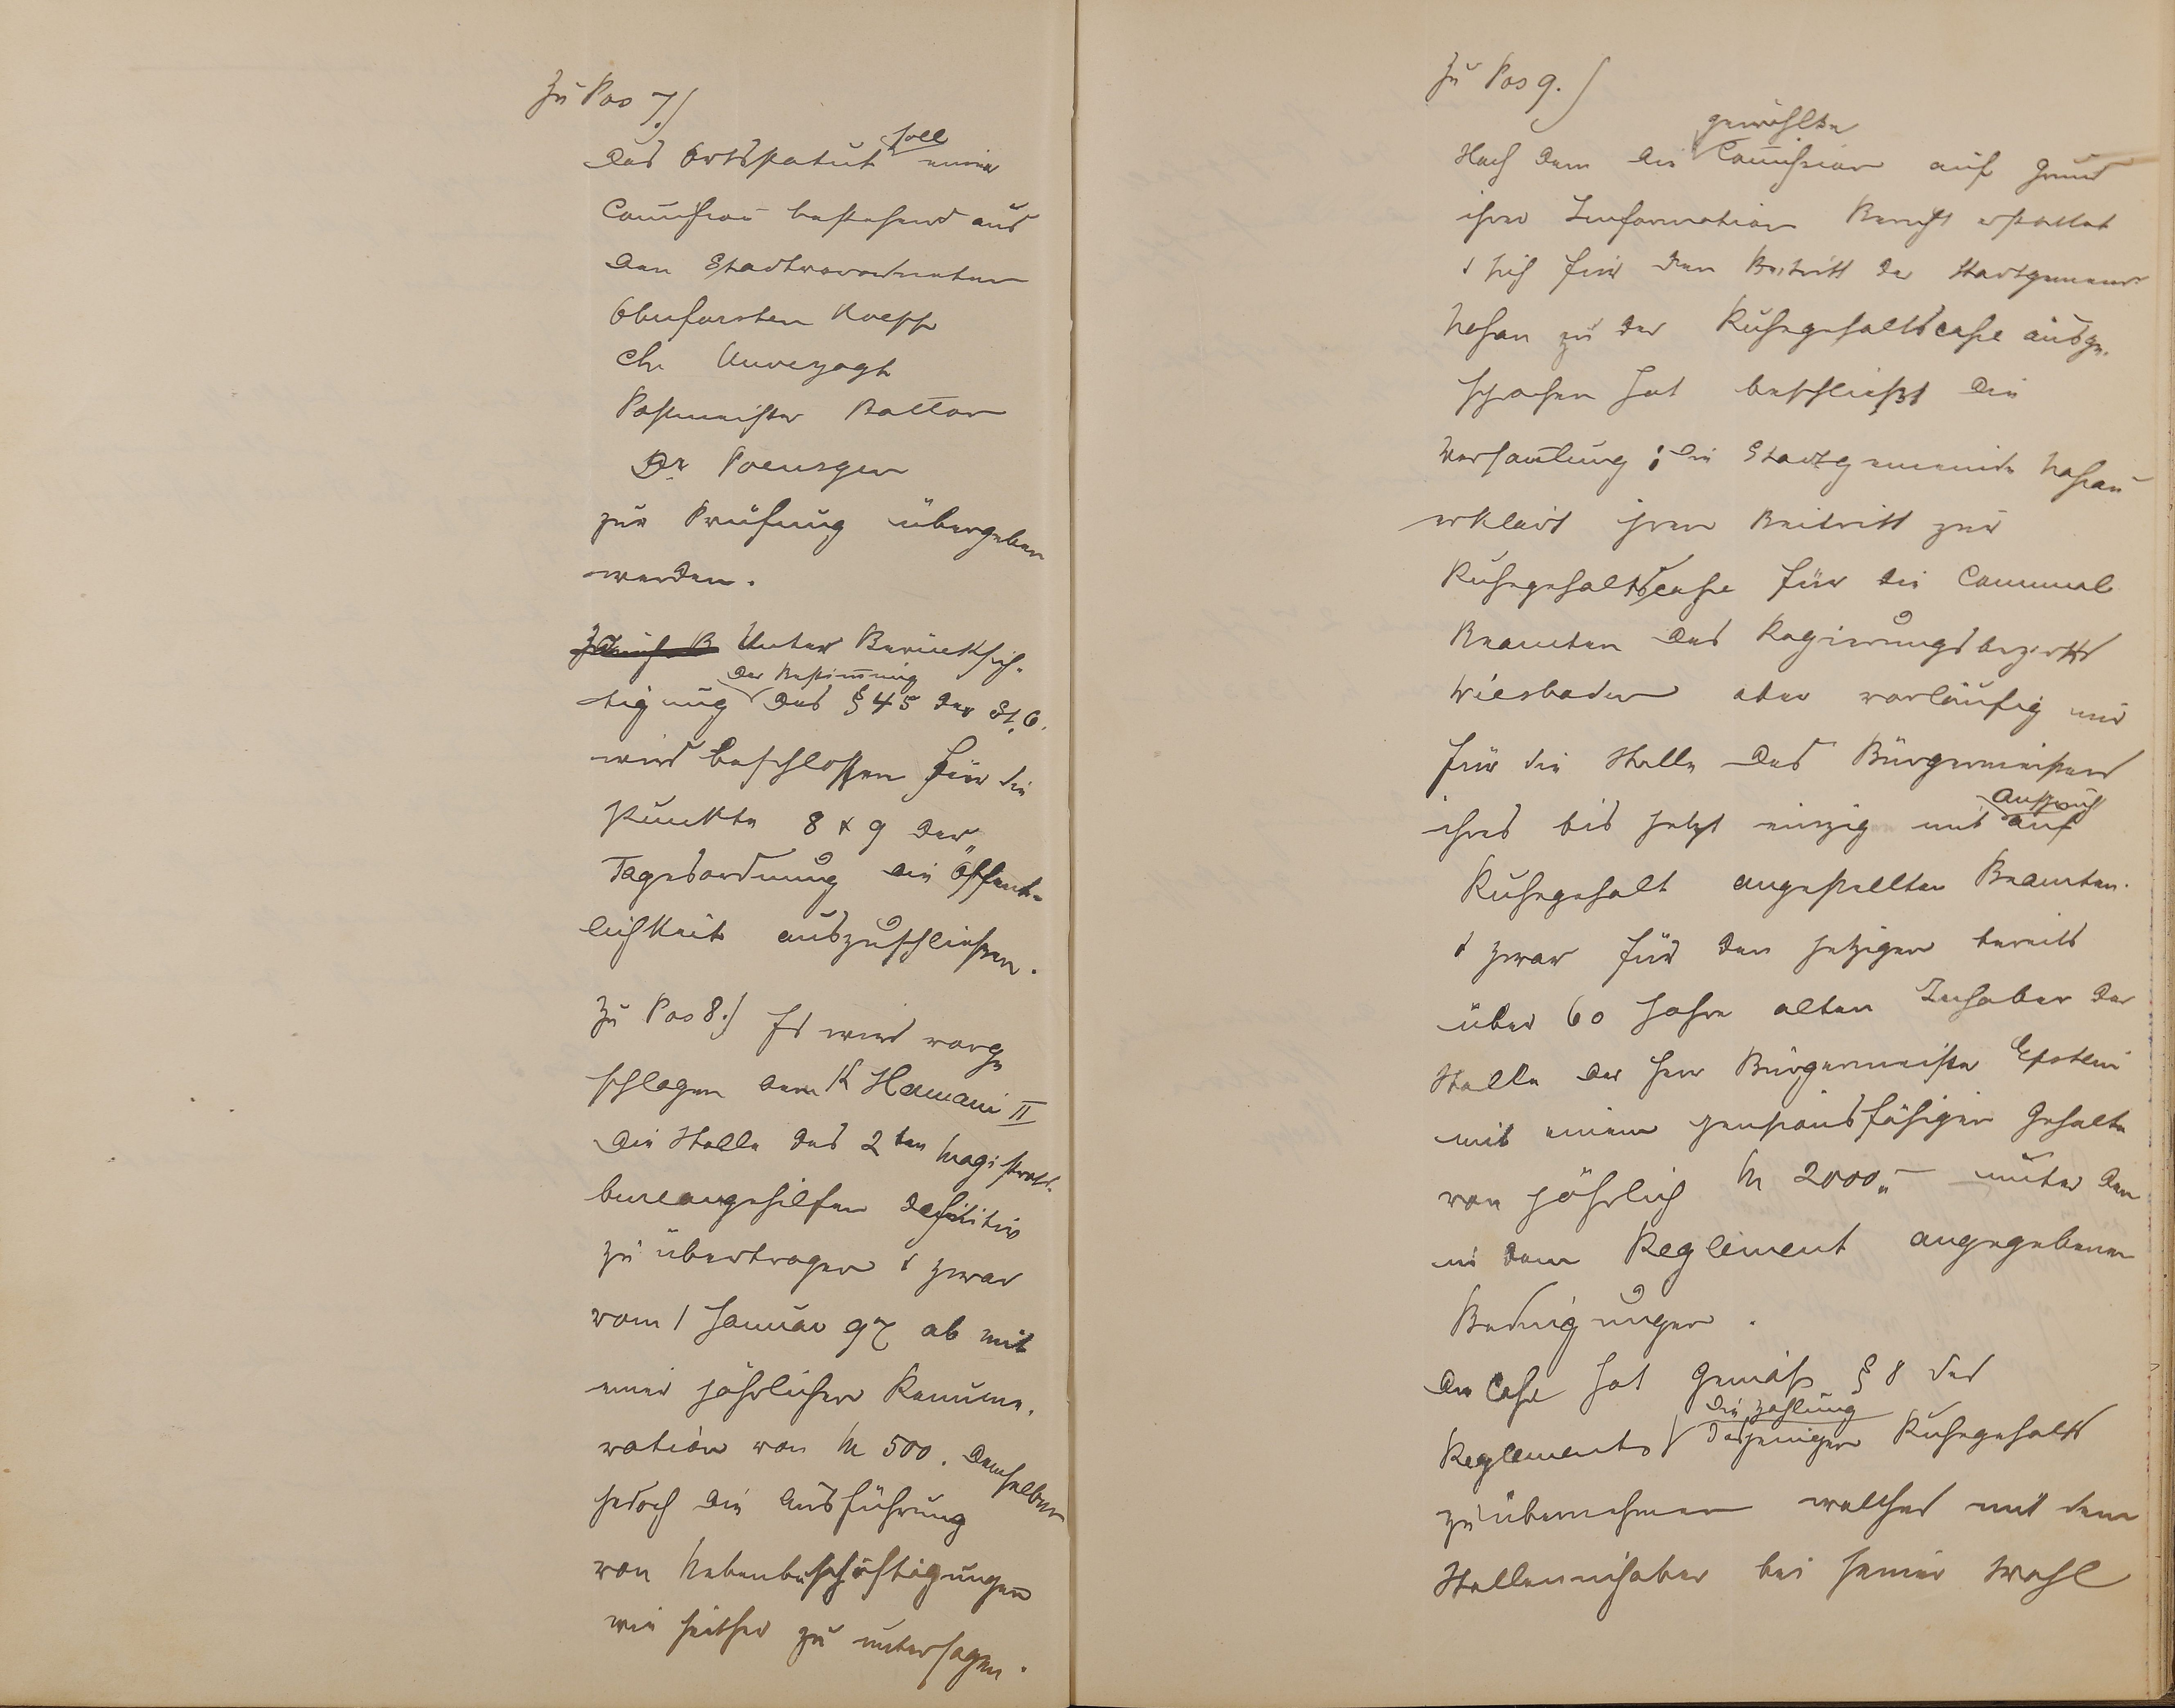 Zu Pos 7.)
soll
Das Ortsstatut einer
Com̄ission bestehend aus
den Stadtverordneten
Oberförster Koepp
Ch. Unverzagt
Postmeister
Dr. Poensgen
zur Prüfung übergeben
werden.
Unter Berücksich-
der Bestim̄ung
tigung des § 45 der St. O.
wird beschlossen für die
Punkte 8 & 9 der
Tagesordnung die Öffent-
lichkeit auszuschließen.
Zu Pos 8.) Es wird vorge
schlagen dem K Hemani II
die Stelle des 2ten Magistrats-
bureaugehilfen definitiv
zu übertragen & zwar
vom 1 Januar 97 ab mit
einer jährlichen Remune-
ration von M 500. Demselben
jedoch die Ausführung
von Nebenbeschäftigungen
wie seither zu untersagen.
Zu Pos 9.)
gewählte
Nach dem die Com̄ission auf Grund
ihrer Information Bericht erstattet
& sich für den Beitritt der Stadtgemeinde
Nassau zu der Ruhegehaltscasse ausge-
sprochen hat beschließt die
Versam̄lung: die Stadtgemeinde Nassau
erklärt ihren Beitritt zur
Ruhegehaltscasse für die Communal
Beamten des Regierungsbezirks
Wiesbaden aber vorläufig nur
für die Stelle des Bürgermeisters
Anspruch
ihres bis jetzt einzig mit auf
Ruhegehalt angestellten Beamten.
& zwar für den jetzigen bereits
über 60 Jahre alten Inhaber der
Stelle der Herr Bürgermeister Epstein
mit einem pensionsfähigen Gehalte
von jährlich M 2000 „ — unter den
in dem Reglement angegebenen
Bedingungen.
Die Casse hat gemäß § 8 des
die Zahlung
Reglements desjenigen Ruhegehalts
zu übernehmen welches mit dem
Stelleninhaber bei seiner Wahl